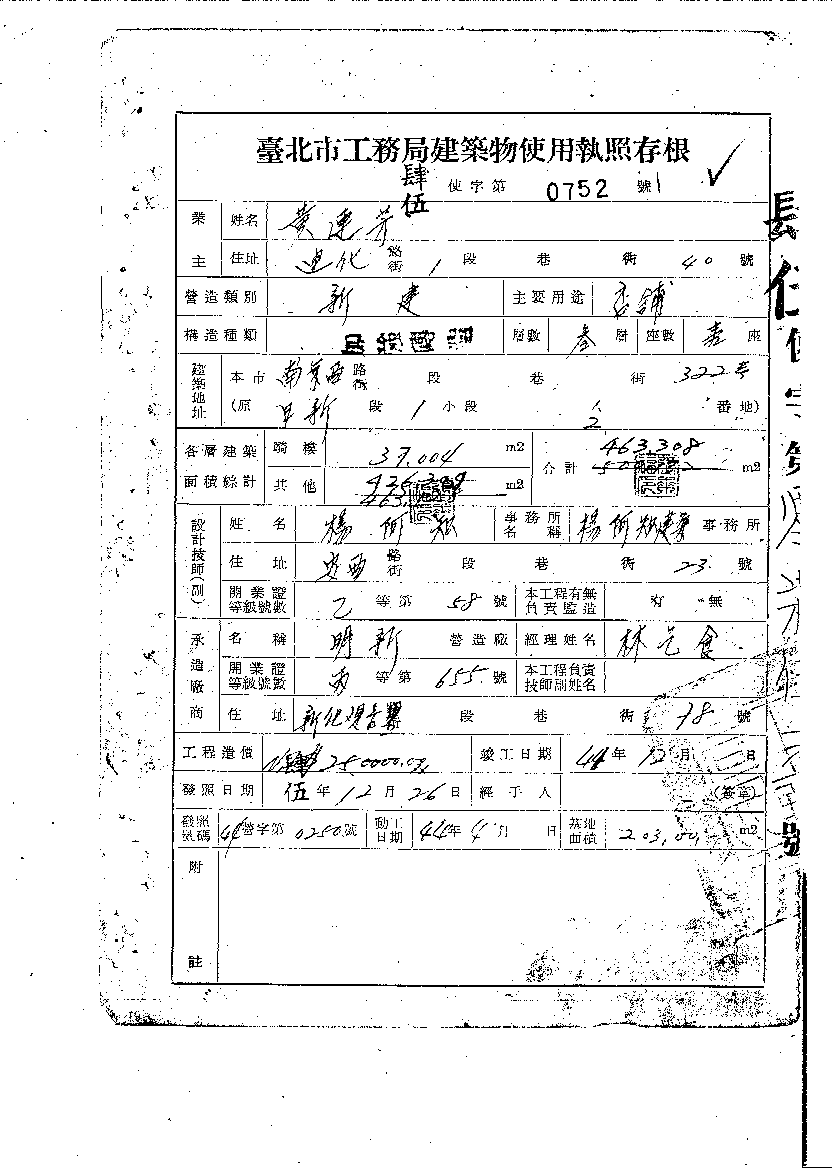 臺北市工務局建築物使用執照存根
肆伍 使字第 0752 號
業主 姓名 黃連芳
住址 迪化 路街 1 段 巷 街 40 號
營造類別 新建 主要用途 店舖
構造種類 層數 叁 層 座數 壹 座
建築地址 本市 南京西 路街 段 巷 街 322号
(原 日新 段 1 小段 2 番地)
各層建築面積綜計 騎樓 37.004 m2 合計 463.308 m2
其他 426.304 m2
設計技師(副) 姓名 楊 事務所名稱 楊 建築 事務所
住址 安西 路街 段 巷 街 23 號
開業證等級號數 乙 等第 58 號 本工程有無負責監造 有 無
承造廠商 名稱 明新 營造廠 經理姓名 林
開業證等級號數 丙 等第 655 號 本工程負責技師副姓名
住址 新化 段 巷 街 78 號
工程造價 250000.00 竣工日期 44年12月 日
發照日期 伍年12月26日 經手人 (簽章)
發照號碼 44營字第0250號 動工日期 44年4月 日 基地面積 203.00 m2
附註